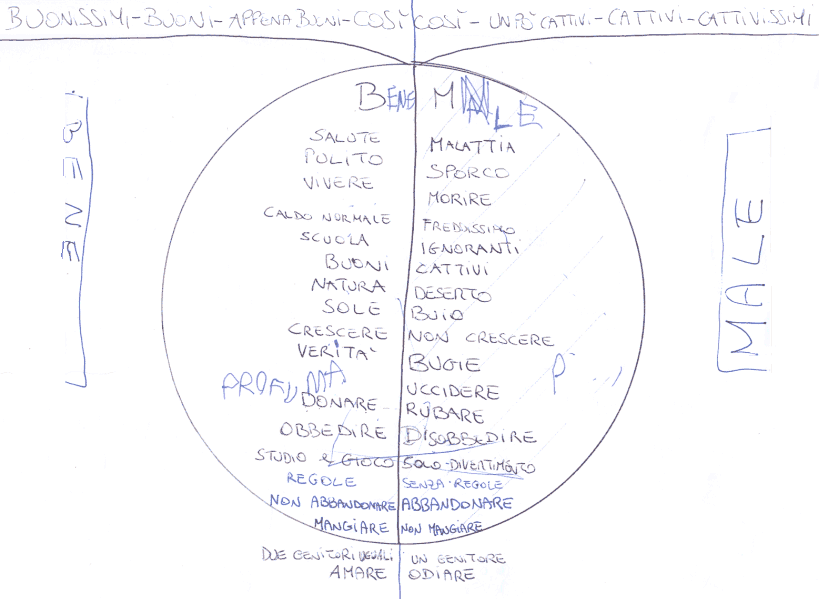 BUONISSIMI-BUONI-APPENA BUONI-COSÌ COSÌ-UN PÒ CATTIVI-CATTIVI-CATTIVISSIMI
BENE MALE
BENE
MALE
SALUTE MALATTIA
PULITO SPORCO
VIVERE MORIRE
CALDO NORMALE FREDDISSIMO
SCUOLA IGNORANTI
BUONI CATTIVI
NATURA DESERTO
SOLE BUIO
CRESCERE NON CRESCERE
VERITÀ BUGIE
PROFUMA P
DONARE UCCIDERE
RUBARE
OBBEDIRE DISOBBEDIRE
STUDIO E GIOCO SOLO-DIVERTIMENTO
REGOLE SENZA-REGOLE
NON ABBANDONARE ABBANDONARE
MANGIARE NON MANGIARE
DUE GENITORI UGUALI UN GENITORE
AMARE ODIARE